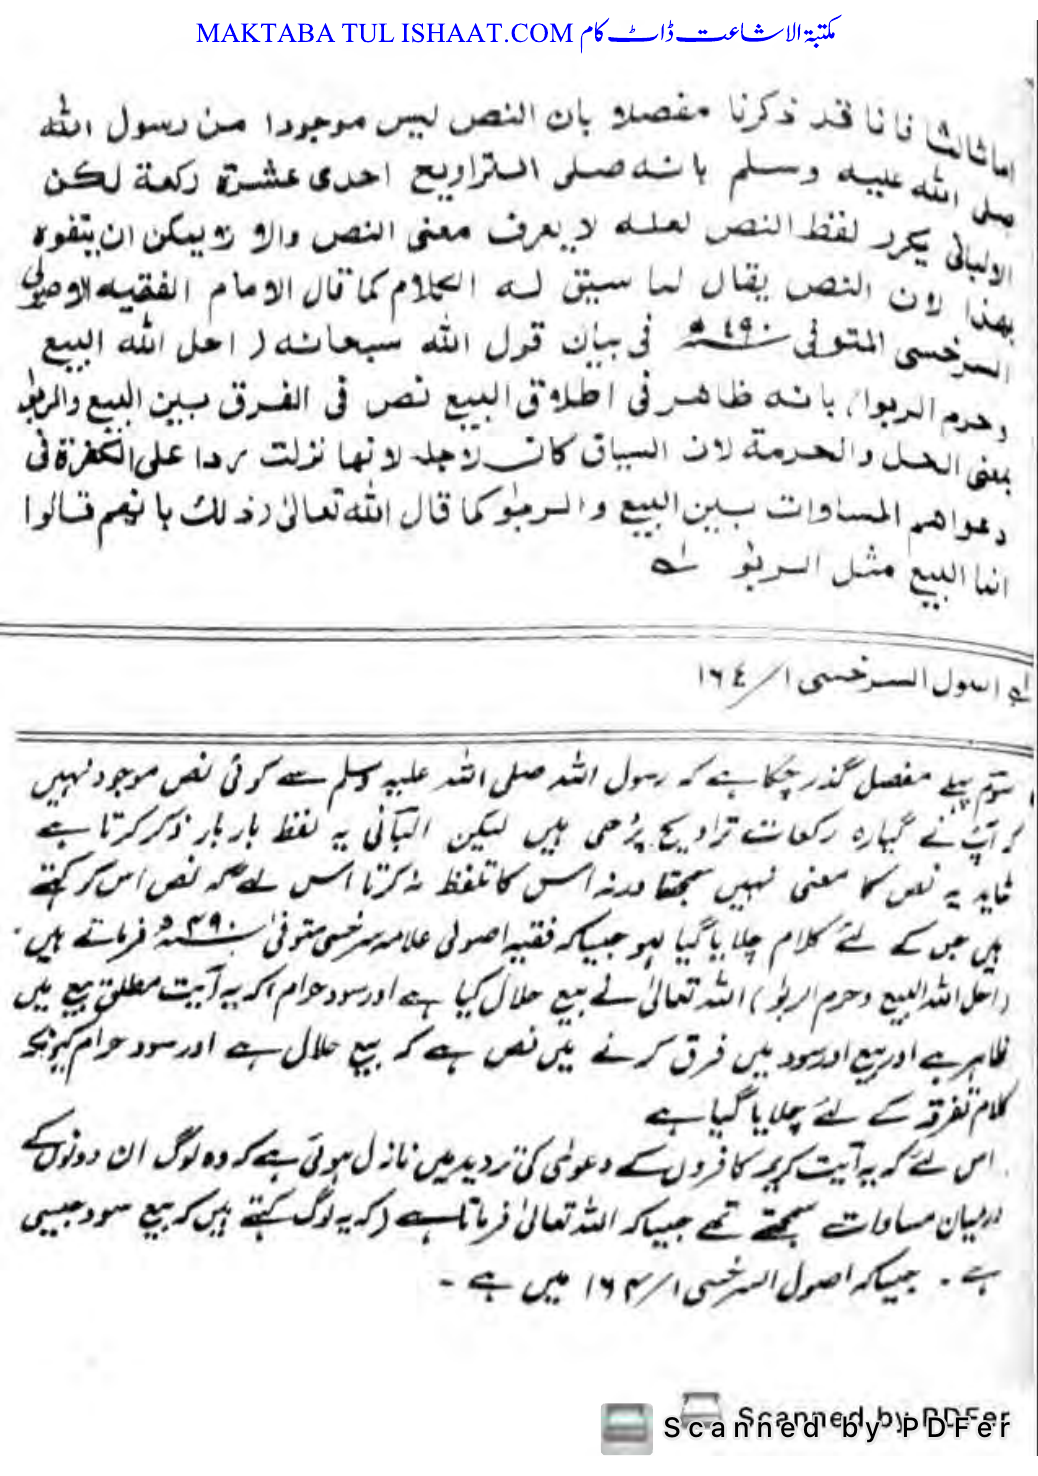 MAKTABA TUL ISHAAT.COM مکتبۃ الاشاعت ڈاٹ کام
اما ثالثا فانا قد ذكرنا مفصلا بان النص ليس موجودا من رسول الله
صلى الله عليه وسلم بانه صلى التراويح احدى عشرة ركعة لكن
الالبانى يكرر لفظ النص لعله لا يعرف معنى النص والا لا يمكن ان يتفوه
بهذا لان النص يقال لما سيق له الكلام كما قال الامام الفقيه الاصولى
السرخسى المتوفى سنه ٤٩٠ھ فى بيان قول الله سبحانه ( احل الله البيع
وحرم الربوا) بانه ظاهر فى اطلاق البيع نص فى الفرق بين البيع والربوٰ
بمعنى الحل والحرمة لان السياق كان لاجله لانها نزلت ردا على الكفرة فى
دعواهم المساوات بين البيع والربوٰ كما قال الله تعالىٰ (ذلك بانهم قالوا
انما البيع مثل الربوٰ لے
لے اصول السرخسى ١/ ١٦٤
سوم پہلے مفصل گذر چکا ہے کہ رسول اللہ صلی اللہ علیہ وسلم سے کوئی نص موجود نہیں
کہ آپؐ نے گیارہ رکعات تراویح پڑھی ہیں لیکن البانی یہ لفظ بار بار ذکر کرتا ہے
شاید یہ نص کا معنی نہیں سمجھتا ورنہ اس کا تلفظ نہ کرتا اس لئے کہ نص اس کو کہتے
ہیں جس کے لئے کلام چلایا گیا ہو جیسا کہ فقیہ اصولی علامہ سرخسی متوفیٰ سنہ ۴۹۰ھ فرماتے ہیں۔
(احل اللہ البیع وحرم الربوٰ) اللہ تعالیٰ نے بیع حلال کیا ہے اور سود حرام) کہ یہ آیت مطلق بیع میں
ظاہر ہے اور بیع اور سود میں فرق کرنے میں نص ہے کہ بیع حلال ہے اور سود حرام کیونکہ
کلام تفرقہ کے لئے چلایا گیا ہے
اس لئے کہ یہ آیت کریمہ کافروں کے دعویٰ کی تردید میں نازل ہوئی ہے کہ وہ لوگ ان دونوں کے
درمیان مساوات سمجھتے تھے جیسا کہ اللہ تعالیٰ فرماتا ہے (کہ یہ لوگ کہتے ہیں کہ بیع سود جیسی
ہے ۔ جیسا کہ اصول السرخسی ۱/ ۱۶۴ میں ہے ۔
Scanned by PDFer
Scanned by PDFer